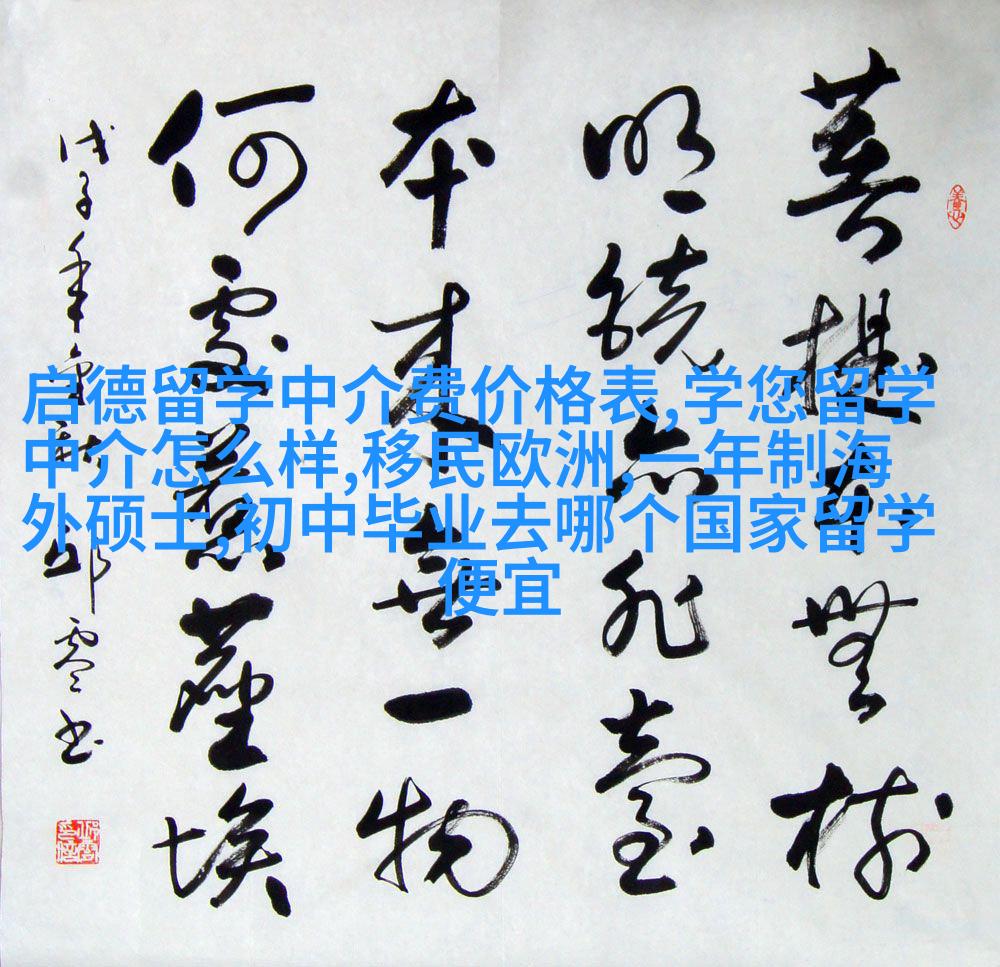 菩提本無樹
明鏡亦非臺
本来無一物
何處惹塵埃
戊子年 邱零书
启德留学中介费价格表,学您留学
中介怎么样,移民欧洲,一年制海
外硕士,初中毕业去哪个国家留学
便宜